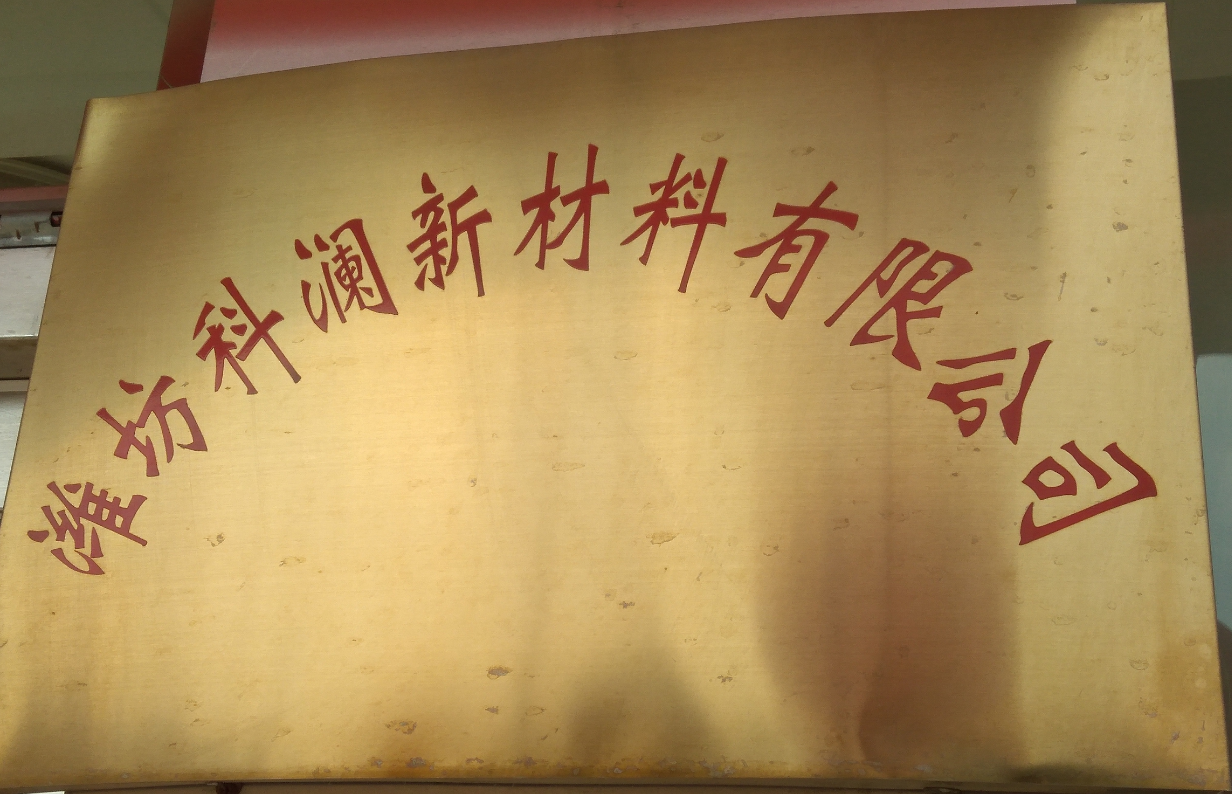 潍坊科澜新材料有限公司